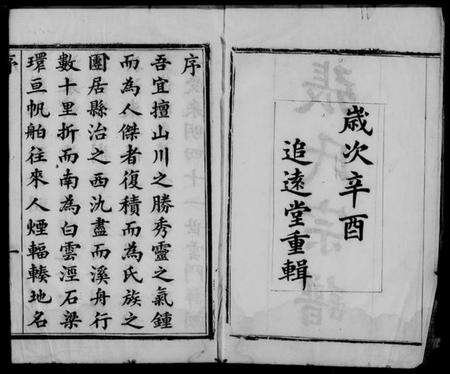 歲次辛酉
追遠堂重輯
序
吾宜擅山川之勝秀靈之氣鍾
而為人傑者復積而為氏族之
團居縣治之西氿盡而溪舟行
數十里折而南為白雲涇石梁
環亘帆舶往來人煙輻輳地名
序
一